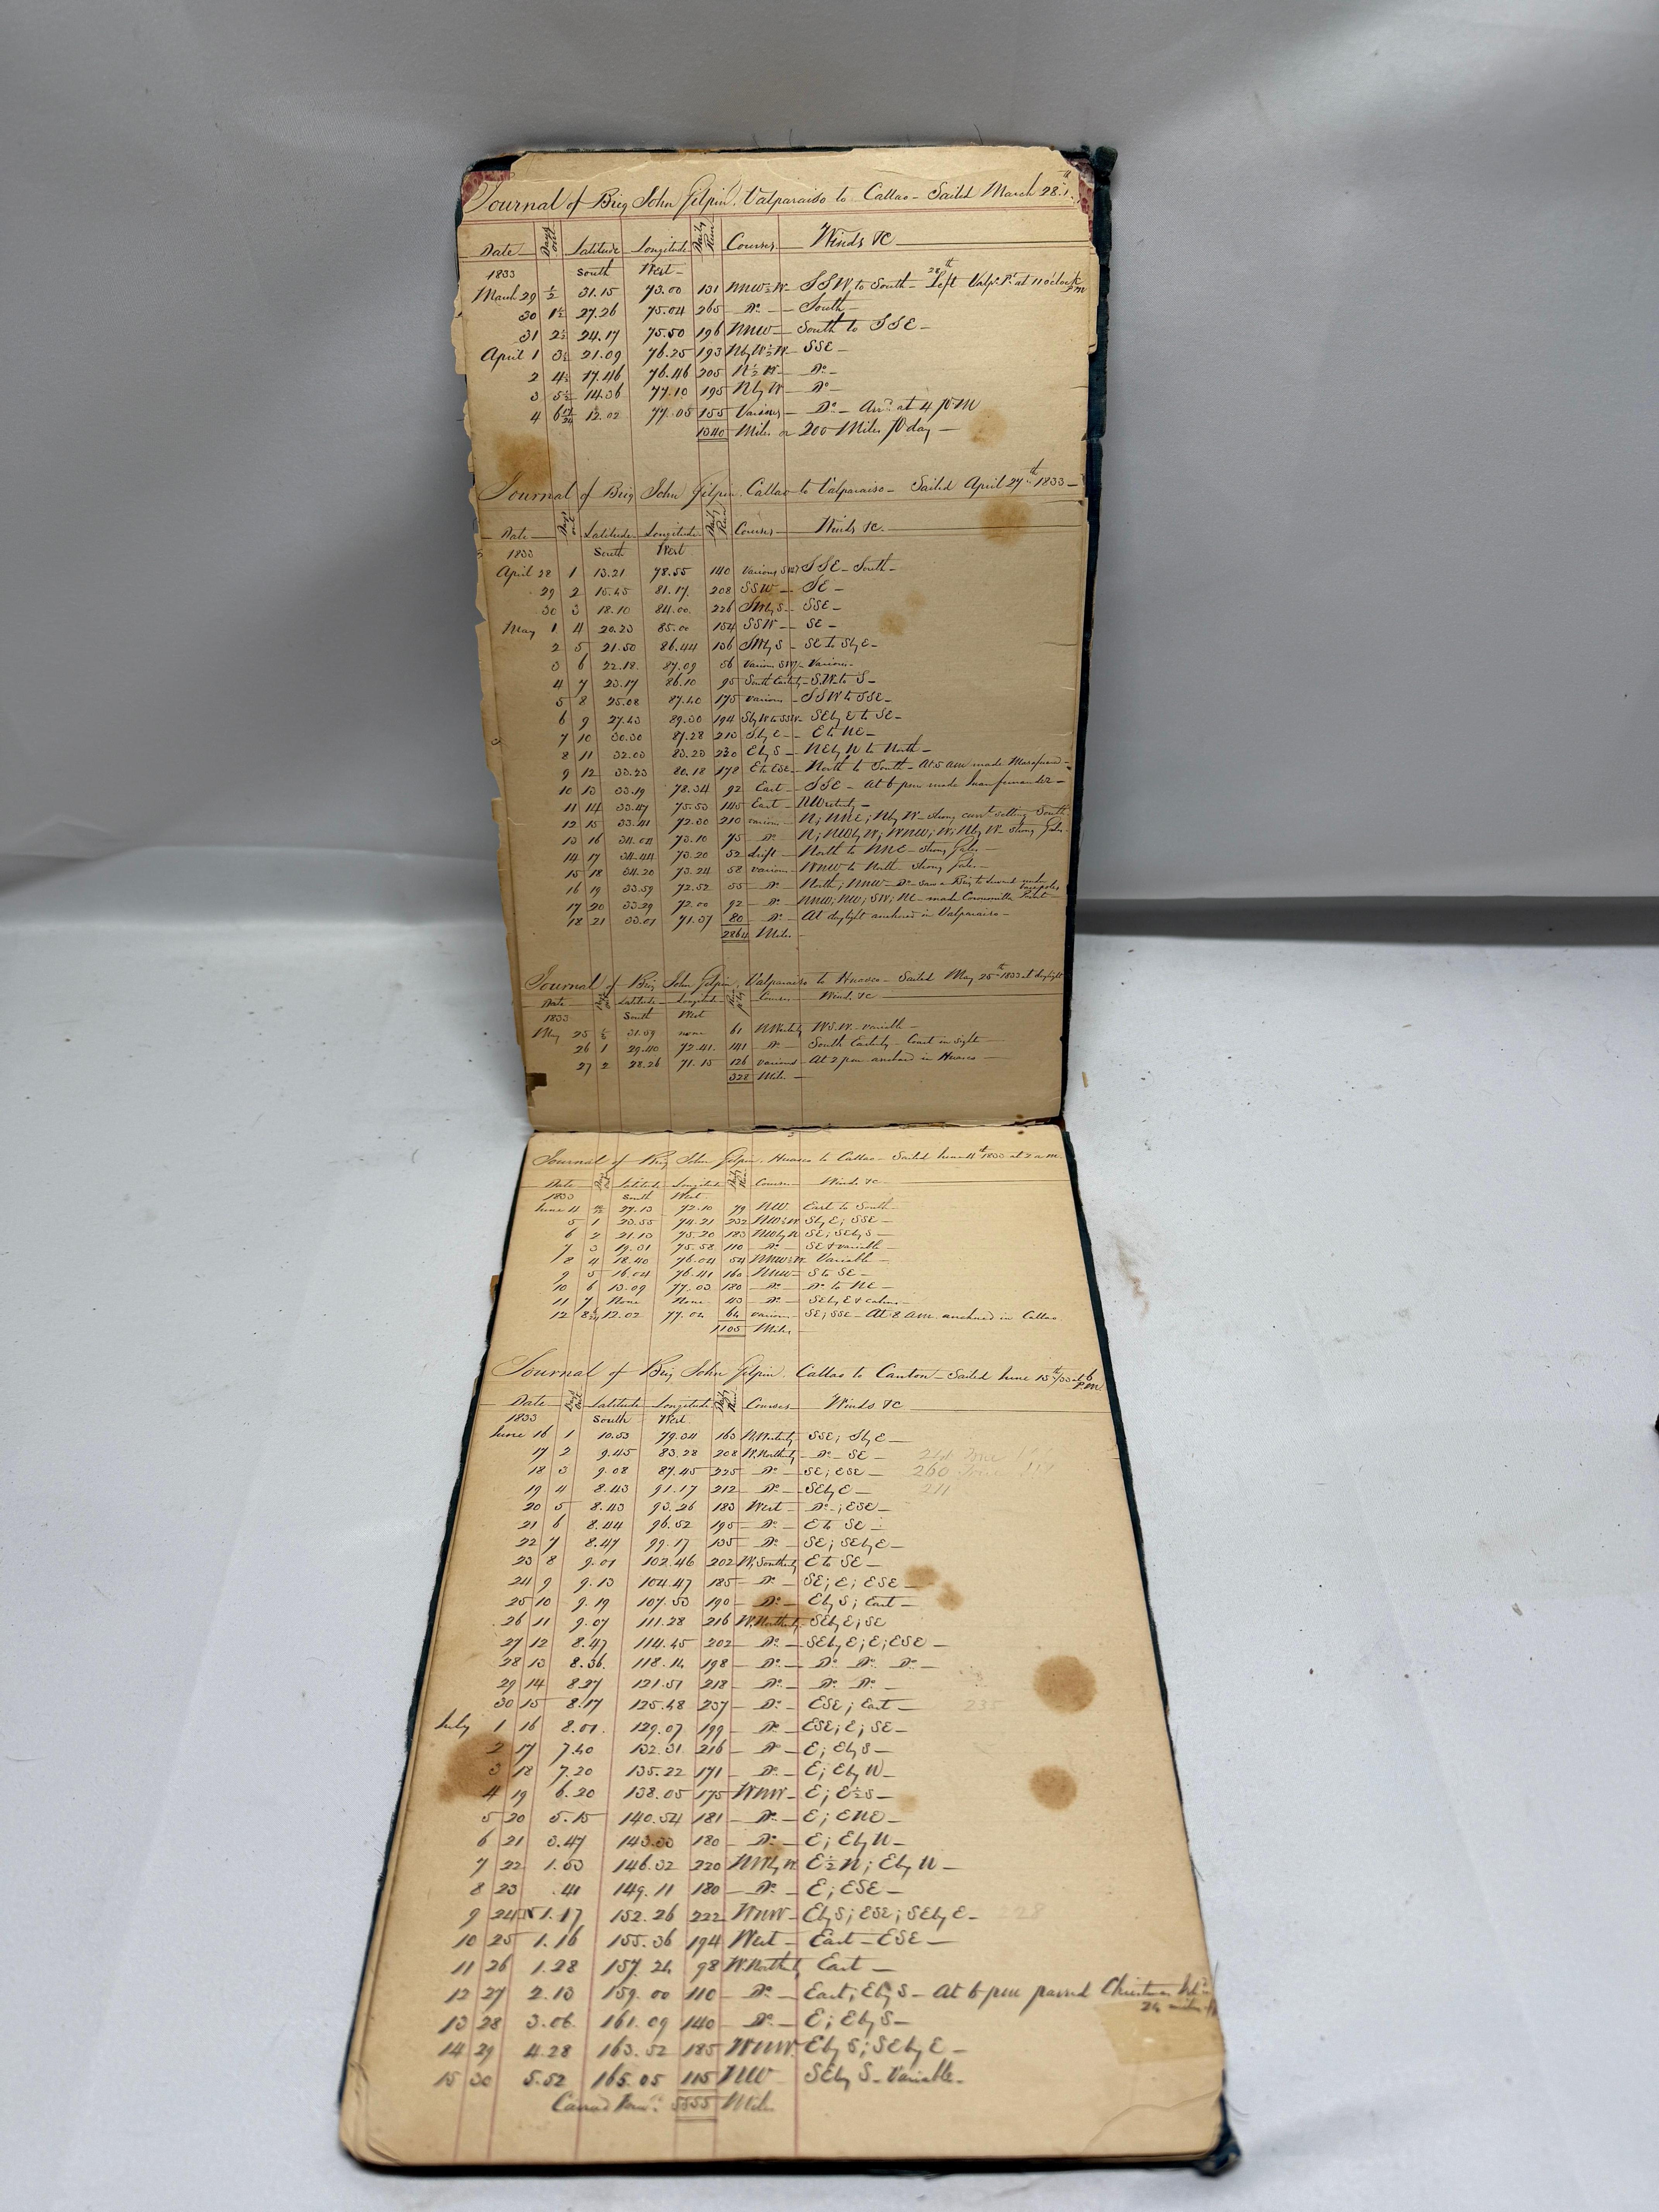 Journal of Brig John Gilpin. Valparaiso to Callao - Sailed March 28th
Date Days out Latitude Longitude Daily Run Courses Winds &c
1833 South West
March 29 ½ 31.15 73.00 131 NNW½W SSW to South - 28th Left Valp.o at 11 o'clock PM
30 1½ 27.26 75.04 265 Do South
31 2½ 24.17 75.50 196 NNW South to SSE
April 1 3½ 21.09 76.25 193 NbyW½W SSE
2 4½ 17.46 76.46 205 N½W Do
3 5½ 14.36 77.10 195 NbyW Do
4 6 17/24 12.02 77.05 155 Various Do - Arrd at 4 PM
1340 Miles or 200 Miles P day
Journal of Brig John Gilpin. Callao to Valparaiso - Sailed April 27th 1833
Date Days out Latitude Longitude Daily Run Courses Winds &c
1833 South West
April 28 1 13.21 78.55 140 various SSE - South
29 2 15.45 81.17 208 SSW SE
30 3 18.10 84.00 226 SWbyS SSE
May 1 4 20.23 85.00 154 SSW SE
2 5 21.50 86.44 136 SWbyS SE to SbyE
3 6 22.18 87.09 56 various Various
4 7 23.17 86.10 95 South Easterly S.W. to S
5 8 25.08 87.40 175 various SSW to SSE
6 9 27.43 89.30 194 SbyW to SSW SEbyE to SE
7 10 30.30 87.28 213 SbyE E to NE
8 11 32.03 83.23 230 EbyS NEbyN to North
9 12 33.23 80.18 178 E to ESE North to South - At 5 am made Masafuero
10 13 33.19 78.34 92 East SSE - At 6 pm made Juan fernandez
11 14 33.47 75.53 145 East NWesterly
12 15 33.41 72.30 210 various N; NNE; NbyW - strong curt setting South
13 16 34.04 73.10 75 Do N; NWbyW; WNW; W; NbyW - strong Gales
14 17 34.44 73.20 52 drift North to NNE - strong Gales
15 18 34.20 73.24 58 various WNW to North strong Gales
16 19 33.59 72.52 55 Do North; NNW - Do - saw a Brig to leeward under barepoles
17 20 33.29 72.00 92 Do NNW; NW; SW; NE - made Point
18 21 33.01 71.37 80 Do At daylight anchored in Valparaiso
2864 Miles
Journal of Brig John Gilpin, Valparaiso to Huasco - Sailed May 25th 1833 at daylight
Date Days out Latitude Longitude Daily Run Courses Winds &c
1833 South West
May 25 ½ 31.59 none 61 NWesterly WSW - variable
26 1 29.40 72.41 141 Do South Easterly - Coast in sight
27 2 28.26 71.15 126 various At 2 pm anchored in Huasco
328 Miles
Journal of Brig John Gilpin. Huasco to Callao - Sailed June 4th 1833 at 2 a.m.
Date Days out Latitude Longitude Daily Run Courses Winds &c
1833 South West
June 4 27.13 72.10 79 NW East to South
5 1 23.55 74.21 232 NW½W SbyE; SSE
6 2 21.13 75.20 183 NWbyN SE; SEbyS
7 3 19.31 75.58 110 Do SE & variable
8 4 18.40 76.04 54 NNW½W Variable
9 5 16.04 76.41 160 NNW S to SE
10 6 13.09 77.03 180 Do Do to NE
11 7 None None 43 Do SEbyE & calms
12 12.02 77.04 64 various SE; SSE - At 8 am anchored in Callao
1105 Miles
Journal of Brig John Gilpin. Callao to Canton - Sailed June 15th/33 at 6 P.M
Date Days out Latitude Longitude Daily Run Courses Winds &c
1833 South West
June 16 1 10.53 79.34 163 N.Westerly SSE; SbyE
17 2 9.45 83.28 208 W.Northerly Do - SE
18 3 9.08 87.45 225 Do SE; ESE
19 4 8.43 91.17 212 Do SEbyE
20 5 8.43 93.26 183 West Do; ESE
21 6 8.44 96.52 195 Do E to SE
22 7 8.47 99.17 135 Do SE; SEbyE
23 8 9.01 102.46 202 W.Southerly E to SE
24 9 9.13 104.47 185 Do SE; E; ESE
25 10 9.19 107.53 190 Do EbyS; East
26 11 9.07 111.28 216 W.Northerly SEbyE; SE
27 12 8.47 114.45 202 Do SEbyE; E; ESE
28 13 8.36 118.14 198 Do Do Do Do
29 14 8.27 121.51 218 Do Do Do
30 15 8.17 125.48 237 Do ESE; East 235
July 1 16 8.01 129.07 199 Do ESE; E; SE
2 17 7.40 132.31 216 Do E; EbyS
3 18 7.20 135.22 171 Do E; EbyN
4 19 6.20 138.05 175 WNW E; E½S
5 20 5.15 140.54 181 Do E; ENE
6 21 3.47 143.33 180 Do E; EbyN
7 22 1.53 146.32 220 NWbyW E½N; EbyN
8 23 .41 149.11 180 Do E; ESE
9 24 N 1.17 152.26 222 WNW EbyS; ESE; SEbyE 228
10 25 1.16 155.36 194 West East - ESE
11 26 1.28 157.24 98 W.Northerly East
12 27 2.13 159.00 110 Do East; EbyS - At 6 pm passed Christmas Isld
13 28 3.06 161.09 140 Do E; EbyS
14 29 4.28 163.52 185 WNW EbyS; SEbyE
15 30 5.52 165.05 115 NW SEbyS - Variable
Carried Forwd 5555 Miles